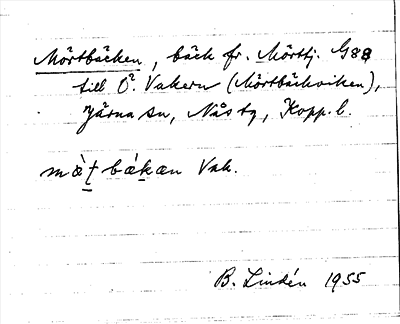 Mörtbäcken, bäck fr. Mörttj. G88
till Ö. Vakern (Mörtbäckviken),
Järna sn, Nås tg, Kopp. l.
B. Lindén 1955